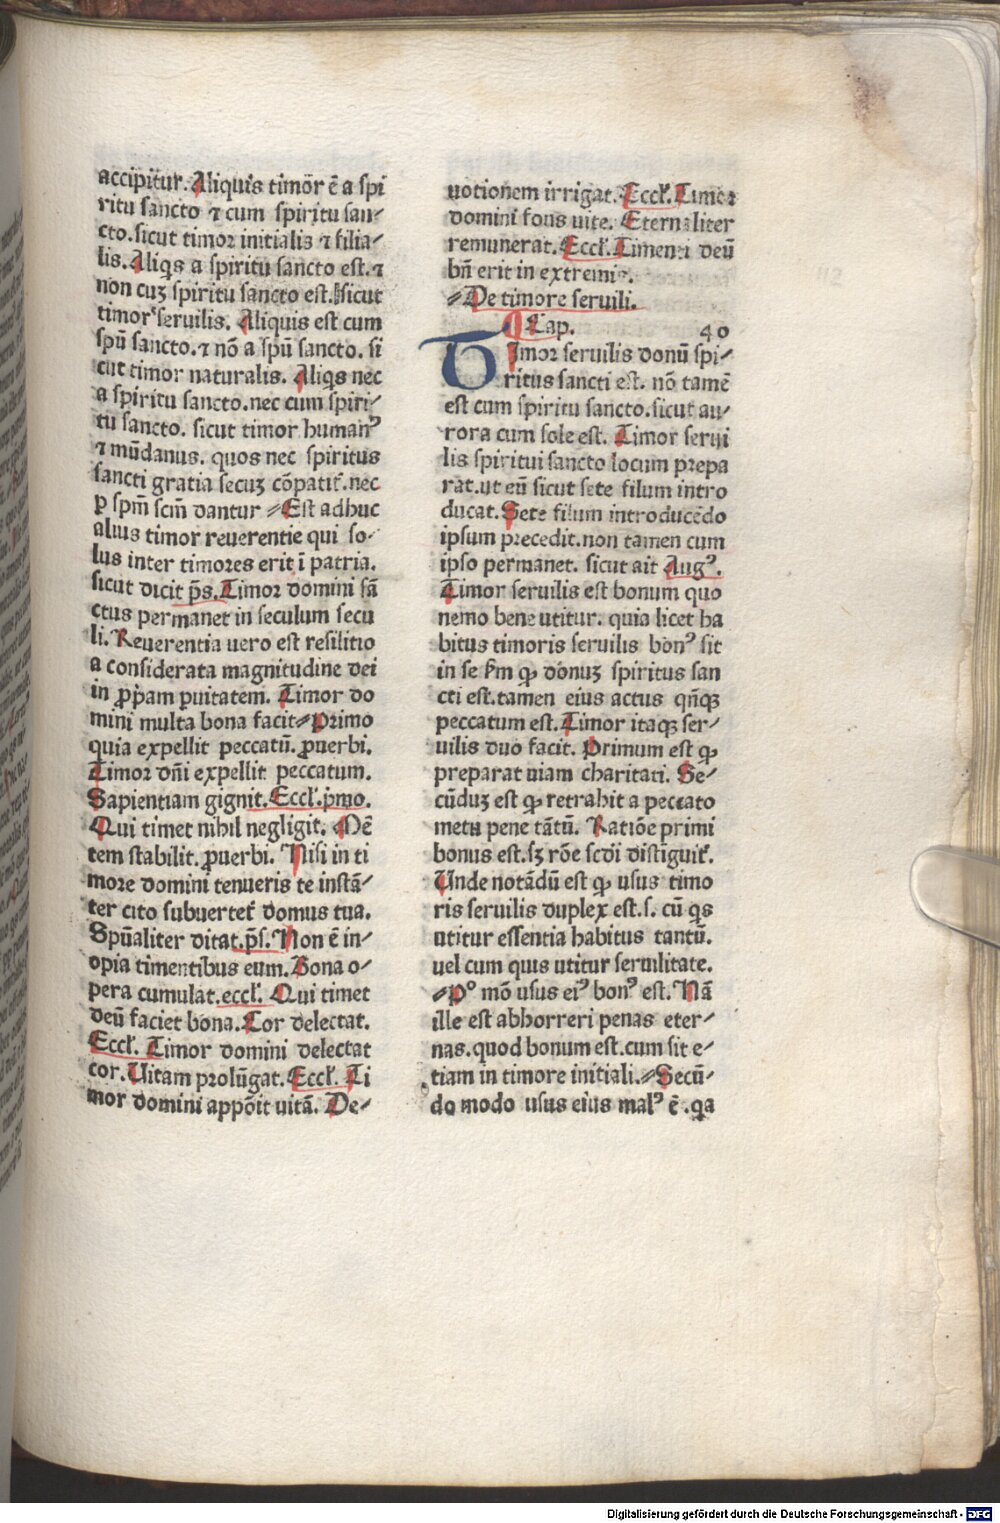 accipitur. Aliquis timōr ē a spi
ritu sancto ⁊ cum spiritu san⸗
cto. sicut timor initialis ⁊ filia⸗
lis. Aliq̄s a spiritu sancto est. ⁊
non cuꝫ spiritu sancto est. sicut
timor seruilis. Aliquis est cum
spū sancto. ⁊ nō a spū sancto. sī
cut timor naturalis. Aliq̄s nec
a spiritu sancto. nec cum spiri⸗
tu sancto. sicut timor humanꝰ
⁊ mūdanus. quos nec spiritus
sancti gratia secuꝫ cōpatit̄. nec
ꝑ spm̄ scm̄ dantur ⸗ Est adhuc
alius timor reuerentie qui so⸗
lus inter timores erit ī patria.
sicut dicit p̄s. Timor domini sā
ctus permanet in seculum secu
li. Reuerentia uero est resilitio
a considerata magnitudine dei
in ꝓp̄am ꝑuitatem. Timor do
mini multa bona facit ⸗ Primo
quia expellit peccatū. ꝓuerbi.
Timor dn̄i expellit peccatum.
Sapientiam gignit. Eccl̄. p̄mo.
Qui timet nihil negligit. Mē
tem stabilit. ꝓuerbi. Nisi in ti
more domini tenueris te instā⸗
ter cito subuertet̄ domus tua.
Spūaliter ditat. p̄s. Non ē in⸗
opia timentibus eum. Bona o⸗
pera cumulat. eccl̄. Qui timet
deū faciet bona. Cor delectat.
Eccl̄. Timor domini delectat
cor. Uitam prolūgat. Eccl̄. Ti
mor domini appōit uitā. De⸗
uotionem irrigat. Eccl̄. Timor
domini fons uite. Eternaliter
remunerat. Eccl̄. Timenti deū
bn̄ erit in extremis.
⸗ De timore seruili.
Cap. 40
Timor seruilis donū spi⸗
ritus sancti est. nō tamē
est cum spiritu sancto. sicut au⸗
rora cum sole est. Timor serui
lis spiritui sancto locum prepa
rat. ut eū sicut sete filum intro
ducat. Sete filum introducēdo
ipsum precedit. non tamen cum
ipso permanet. sicut ait Augꝰ.
Timor seruilis est bonum quo
nemo bene utitur. quia licet ha
bitus timoris seruilis bonꝰ sit
in se ẜm ꝙ donuꝫ spiritus san
cti est. tamen eius actus qn̄qꝫ
peccatum est. Timor itaqꝫ ser⸗
uilis duo facit. Primum est ꝙ
preparat uiam charitati. Se⸗
cūduꝫ est ꝙ retrahit a peccato
metu pene tātū. Ratiōe primi
bonus est. sꝫ rōe scdi distīguit̄.
Unde notādū est ꝙ usus timo
ris seruilis duplex est. s. cū q̄s
utitur essentia habitus tantū.
uel cum quis utitur seruilitate.
⸗ Pº mō usus eiꝰ bonꝰ est. Nā
ille est abhorreri penas eter⸗
nas. quod bonum est. cum sit e⸗
tiam in timore initiali. ⸗ Secū⸗
do modo usus eius malꝰ ē. qa
Digitalisierung gefördert durch die Deutsche Forschungsgemeinschaft - DFG